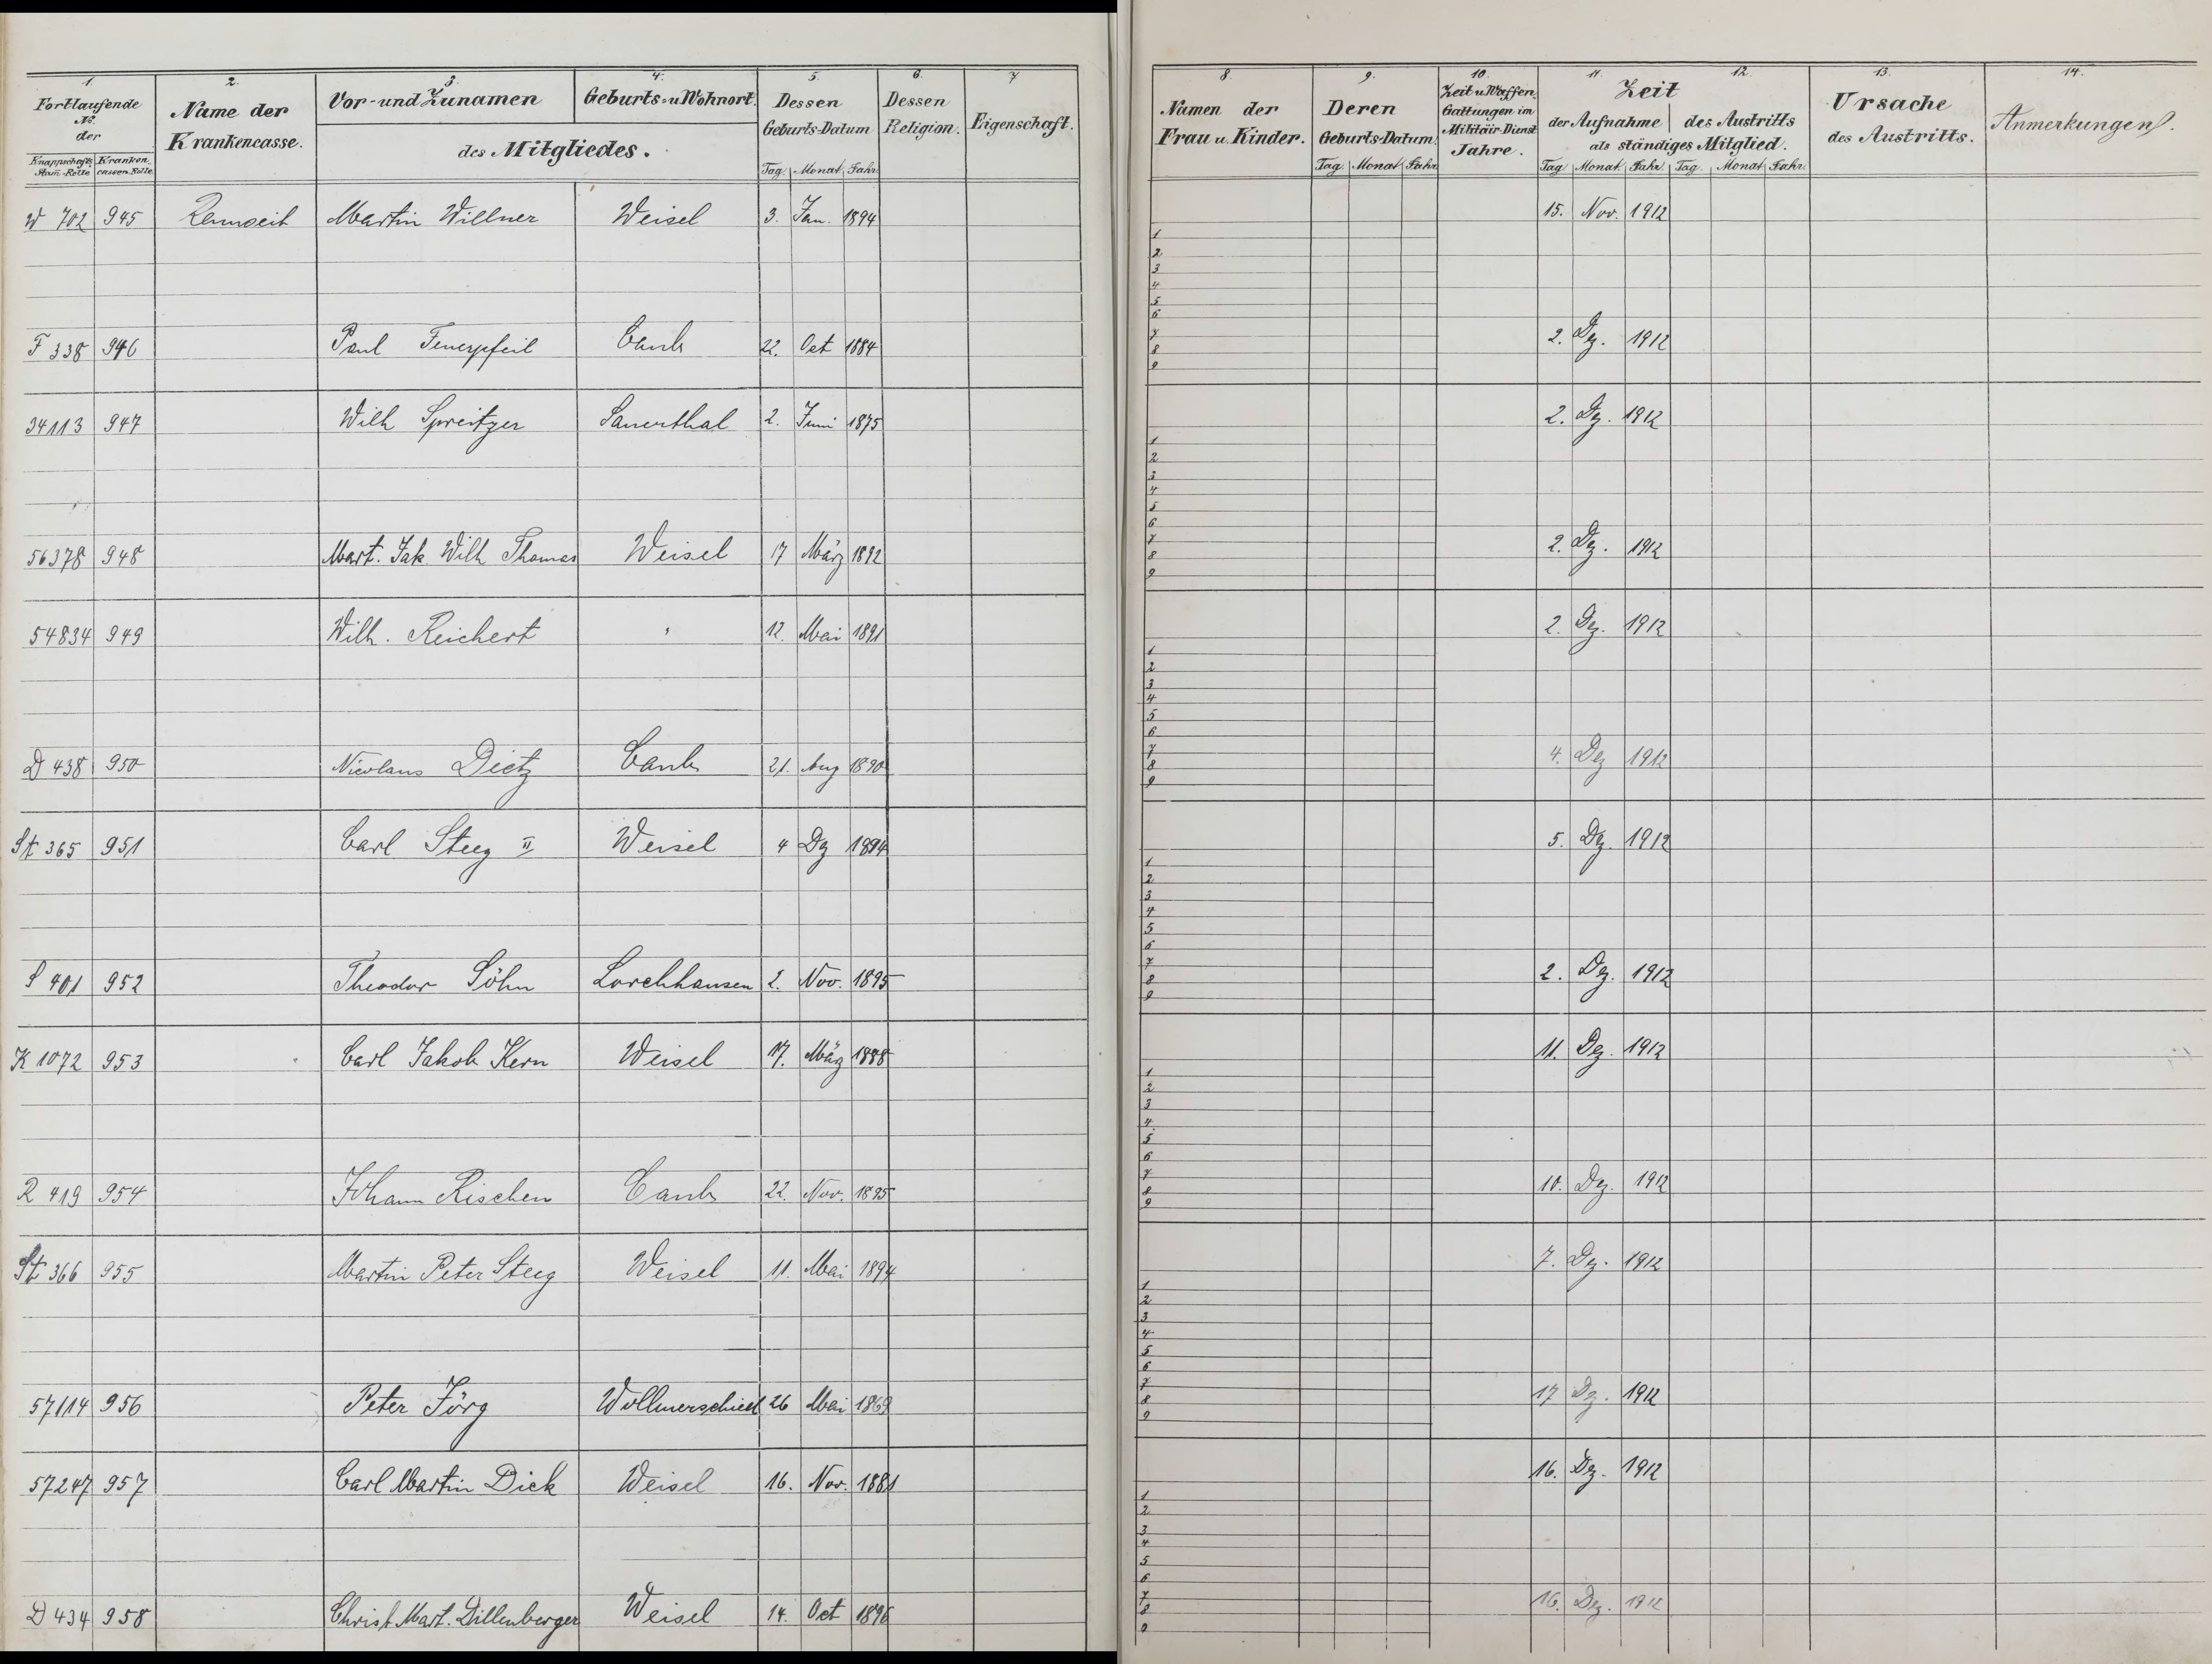 1. 2. 3. 4. 5. 6. 7
Fortlaufende No. der
Knappschafts Stam-Rolle Kranken cassen-Rolle
Name der Krankencasse.
Vor- und Zunamen
Geburts- u Wohnort.
des Mitgliedes.
Dessen Geburts-Datum
Tag. Monat. Jahr.
Dessen Religion.
Eigenschaft.
8. 9. 10. 11. 12. 13. 14.
Namen der Frau u. Kinder.
Deren Geburts-Datum.
Tag. Monat. Jahr.
Zeit u Waffen Gattungen im Militair-Dienst Jahre.
Zeit
der Aufnahme des Austritts
als ständiges Mitglied.
Tag Monat. Jahr. Tag. Monat. Jahr.
Ursache des Austritts.
Anmerkungen.
W 702 945 Martin Willner Weisel 3. Jan. 1894 15. Nov. 1912
1
2
3
4
5
6
F 338 946 Paul Feuerpfeil Caub 22. Oct 1884 2. Dez. 1912
7
8
9
34113 947 Wilh Spreitzer Sauerthal 2. Juni 1875 2. Dez. 1912
1
2
3
4
5
6
56378 948 Mart. Jak. Wilh Thomas Weisel 17 März 1892 2. Dez. 1912
7
8
9
54834 949 Wilh. Reichert " 12. Mai 1891 2. Dez. 1912
1
2
3
4
5
6
D 438 950 Nicolaus Dietz Caub 21. Aug 1890 4. Dez 1912
7
8
9
St 365 951 Carl Steeg II Weisel 4 Dez 1894 5. Dez. 1912
1
2
3
4
5
6
S 401 952 Theodor Söhn Lorchhausen 2. Nov. 1895 2. Dez. 1912
7
8
9
K 1072 953 Carl Jakob Kern Weisel 17. März 1888 11. Dez. 1912
1
2
3
4
5
6
R 419 954 Johann Rischen Caub 22. Nov. 1895 10. Dez. 1912
7
8
9
St 366 955 Martin Peter Steeg Weisel 11. Mai 1894 7. Dez. 1912
1
2
3
4
5
6
57114 956 Peter Jörg Wollmerschied 26 Mai 1869 17 Dez. 1912
7
8
9
57247 957 Carl Martin Dick Weisel 16. Nov. 1881 16. Dez. 1912
1
2
3
4
5
6
D 434 958 Christ. Mart. Dillenberger Weisel 14. Oct 1896 16. Dez. 1912
7
8
9